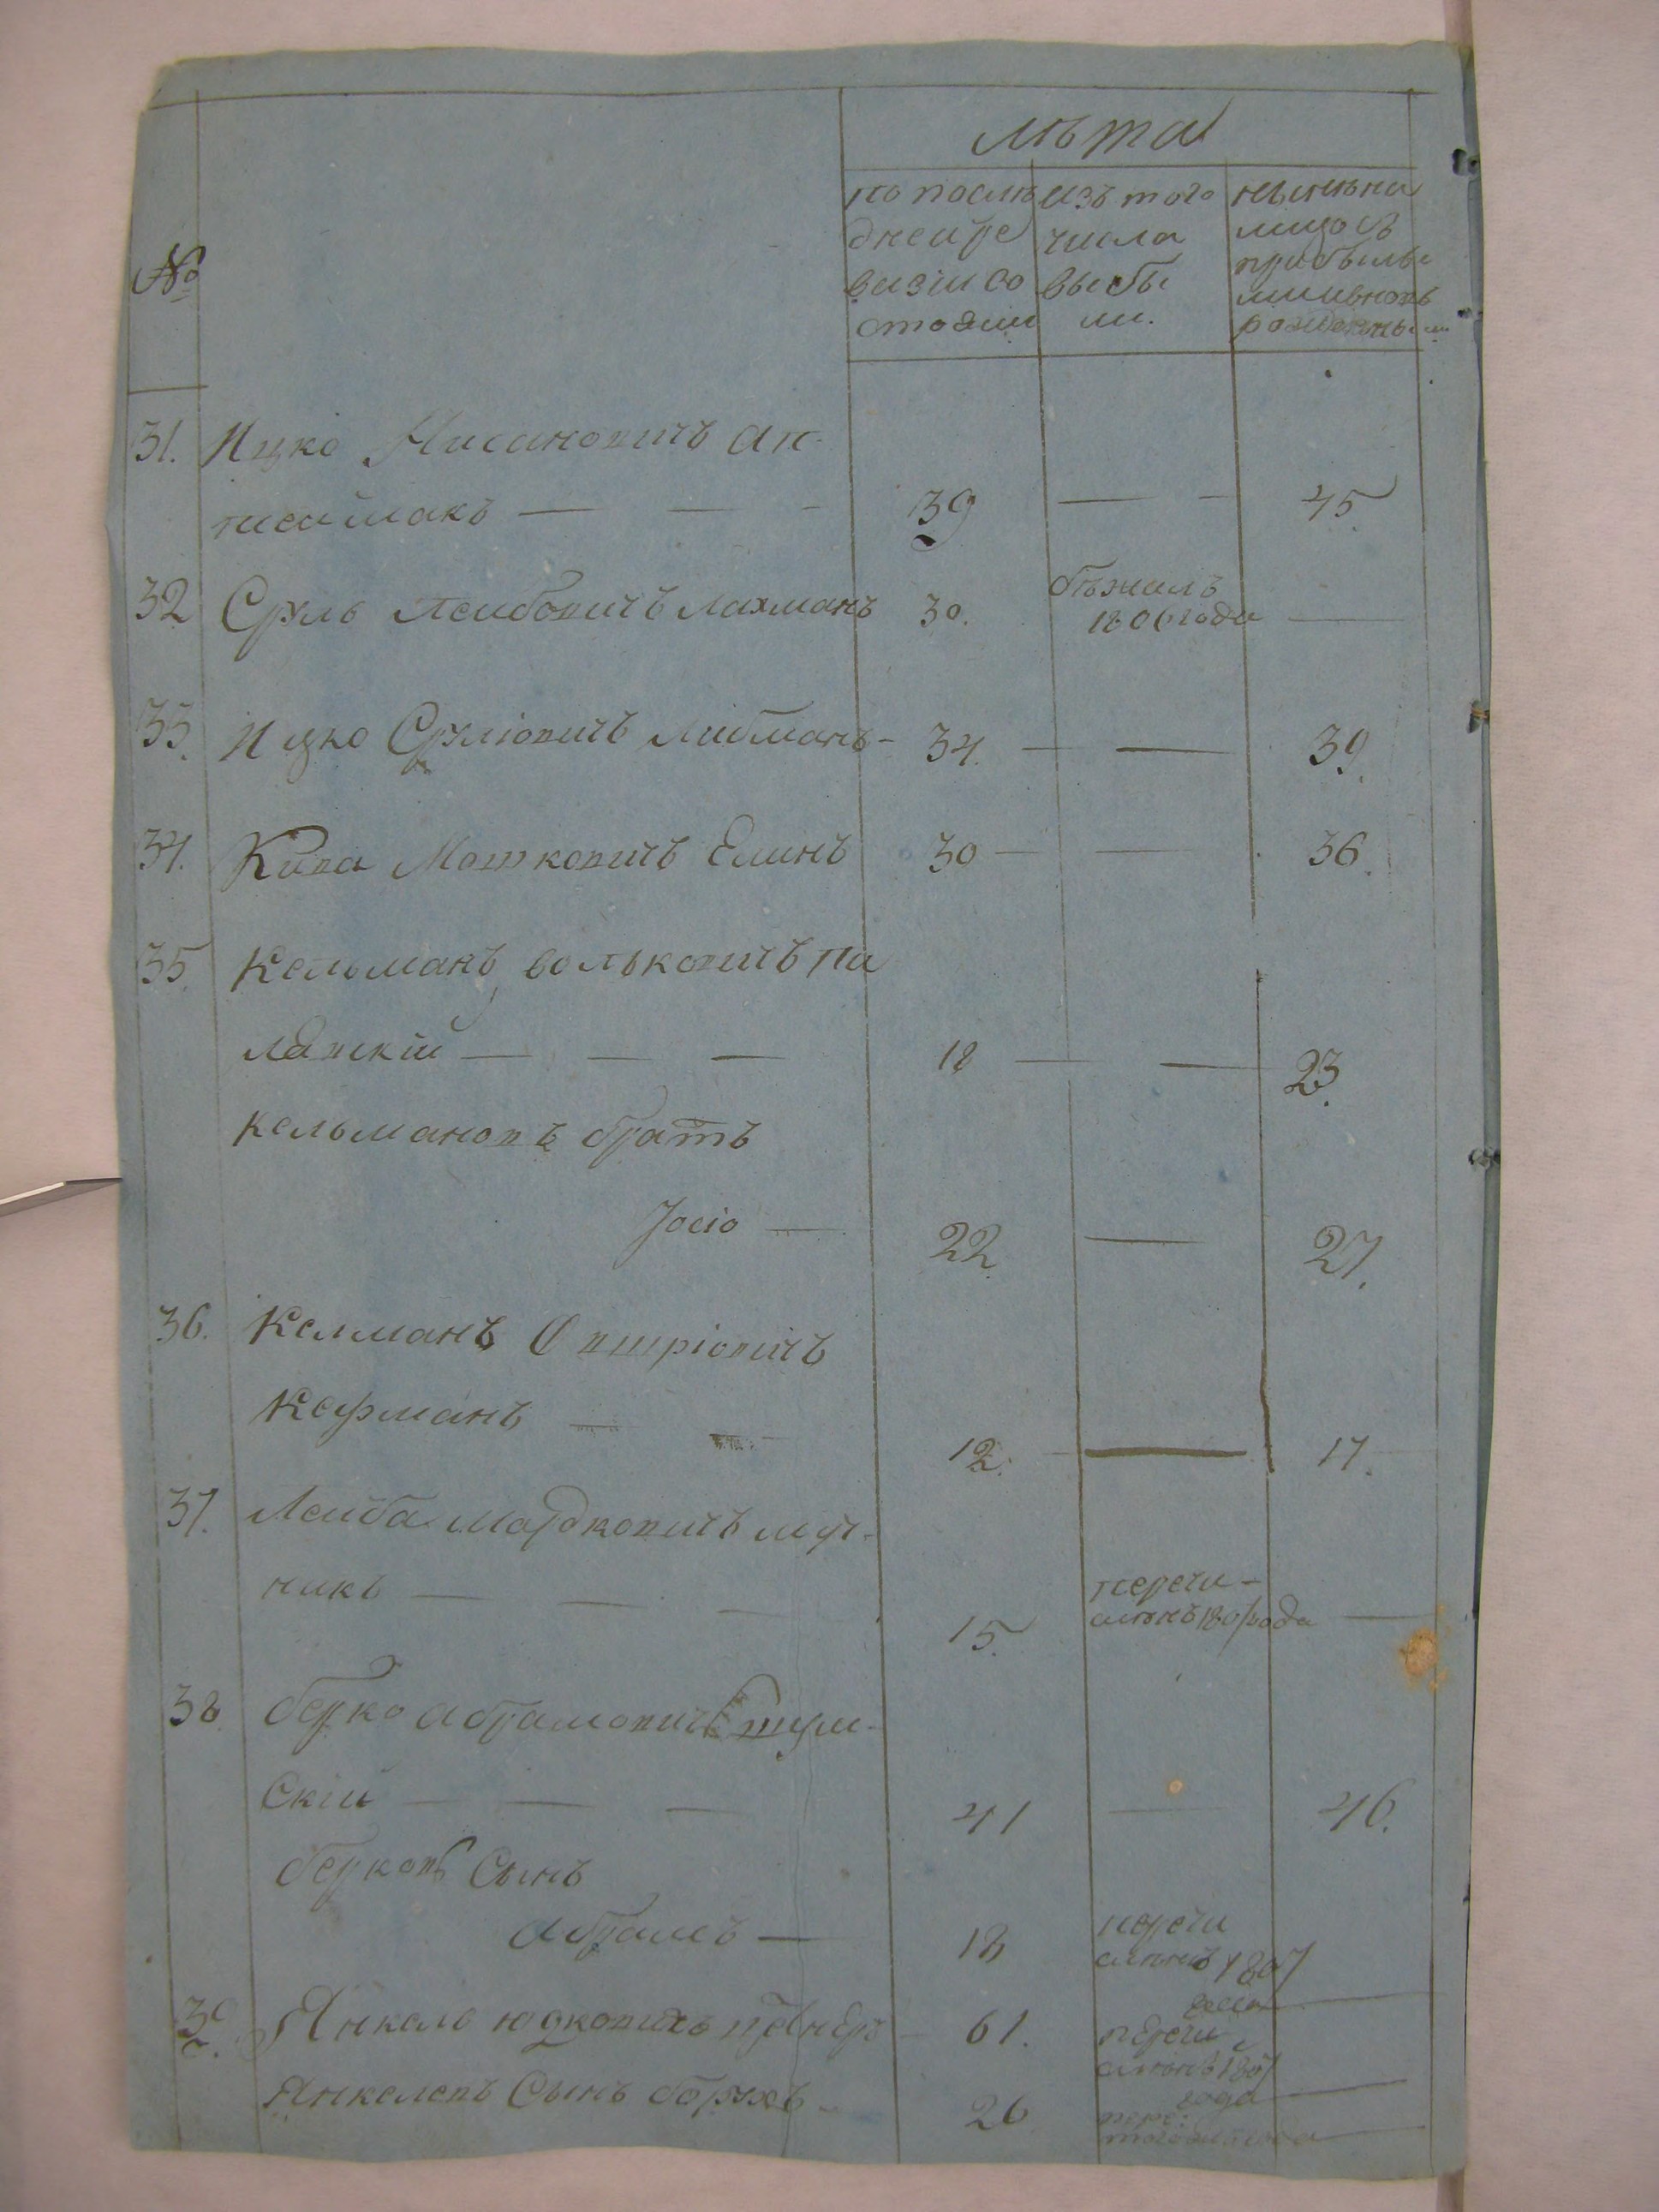 лѣта
№
по послѣ
дней ре
визіи со
стояли
изъ того
числа
выбы
ли.
нынѣ на
лицо съ
прибылы
ми и вновь
рожденными
31. Ицко Нисиновичъ ап
39 45.
32 Сруль Леибовичъ Лахманъ 30. бѣжалъ
1806 года
33. Ицко Сруліовичъ Либманъ 34. 39.
34. Кива Мошковичъ Елинъ 30 36.
35. Кельманъ вольковичъ па
лявскій 18 23.
кельмановъ братъ
Іосіо 22. 27.
36. Келманъ
Кафманъ 12. 17.
37. Леиба мордковичъ муч-
никъ 15. перечи-
сленъ 1807 года
38. берко абрамовичъ
скій 41 46.
берковъ Сынъ
абрамъ 18 перечи
сленъ 1807
года
39. Янкель юдковичъ 61. перечи
сленъ 1807
года
Янкелевъ Сынъ борухъ 26